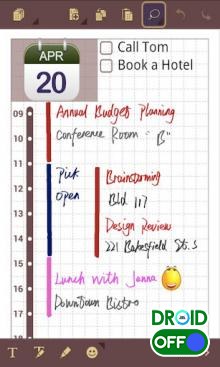 APR
20
Call Tom
Book a Hotel
09
Annual Budget Planning
10
Conference Room "B"
11
12
Pick
Brainstorming
Open
Bld 117
13
Design Review
14
221 Bakesfield St. S
15
Lunch with Jenna
16
Downtown Bistro
17
18
T
DROID
OFF